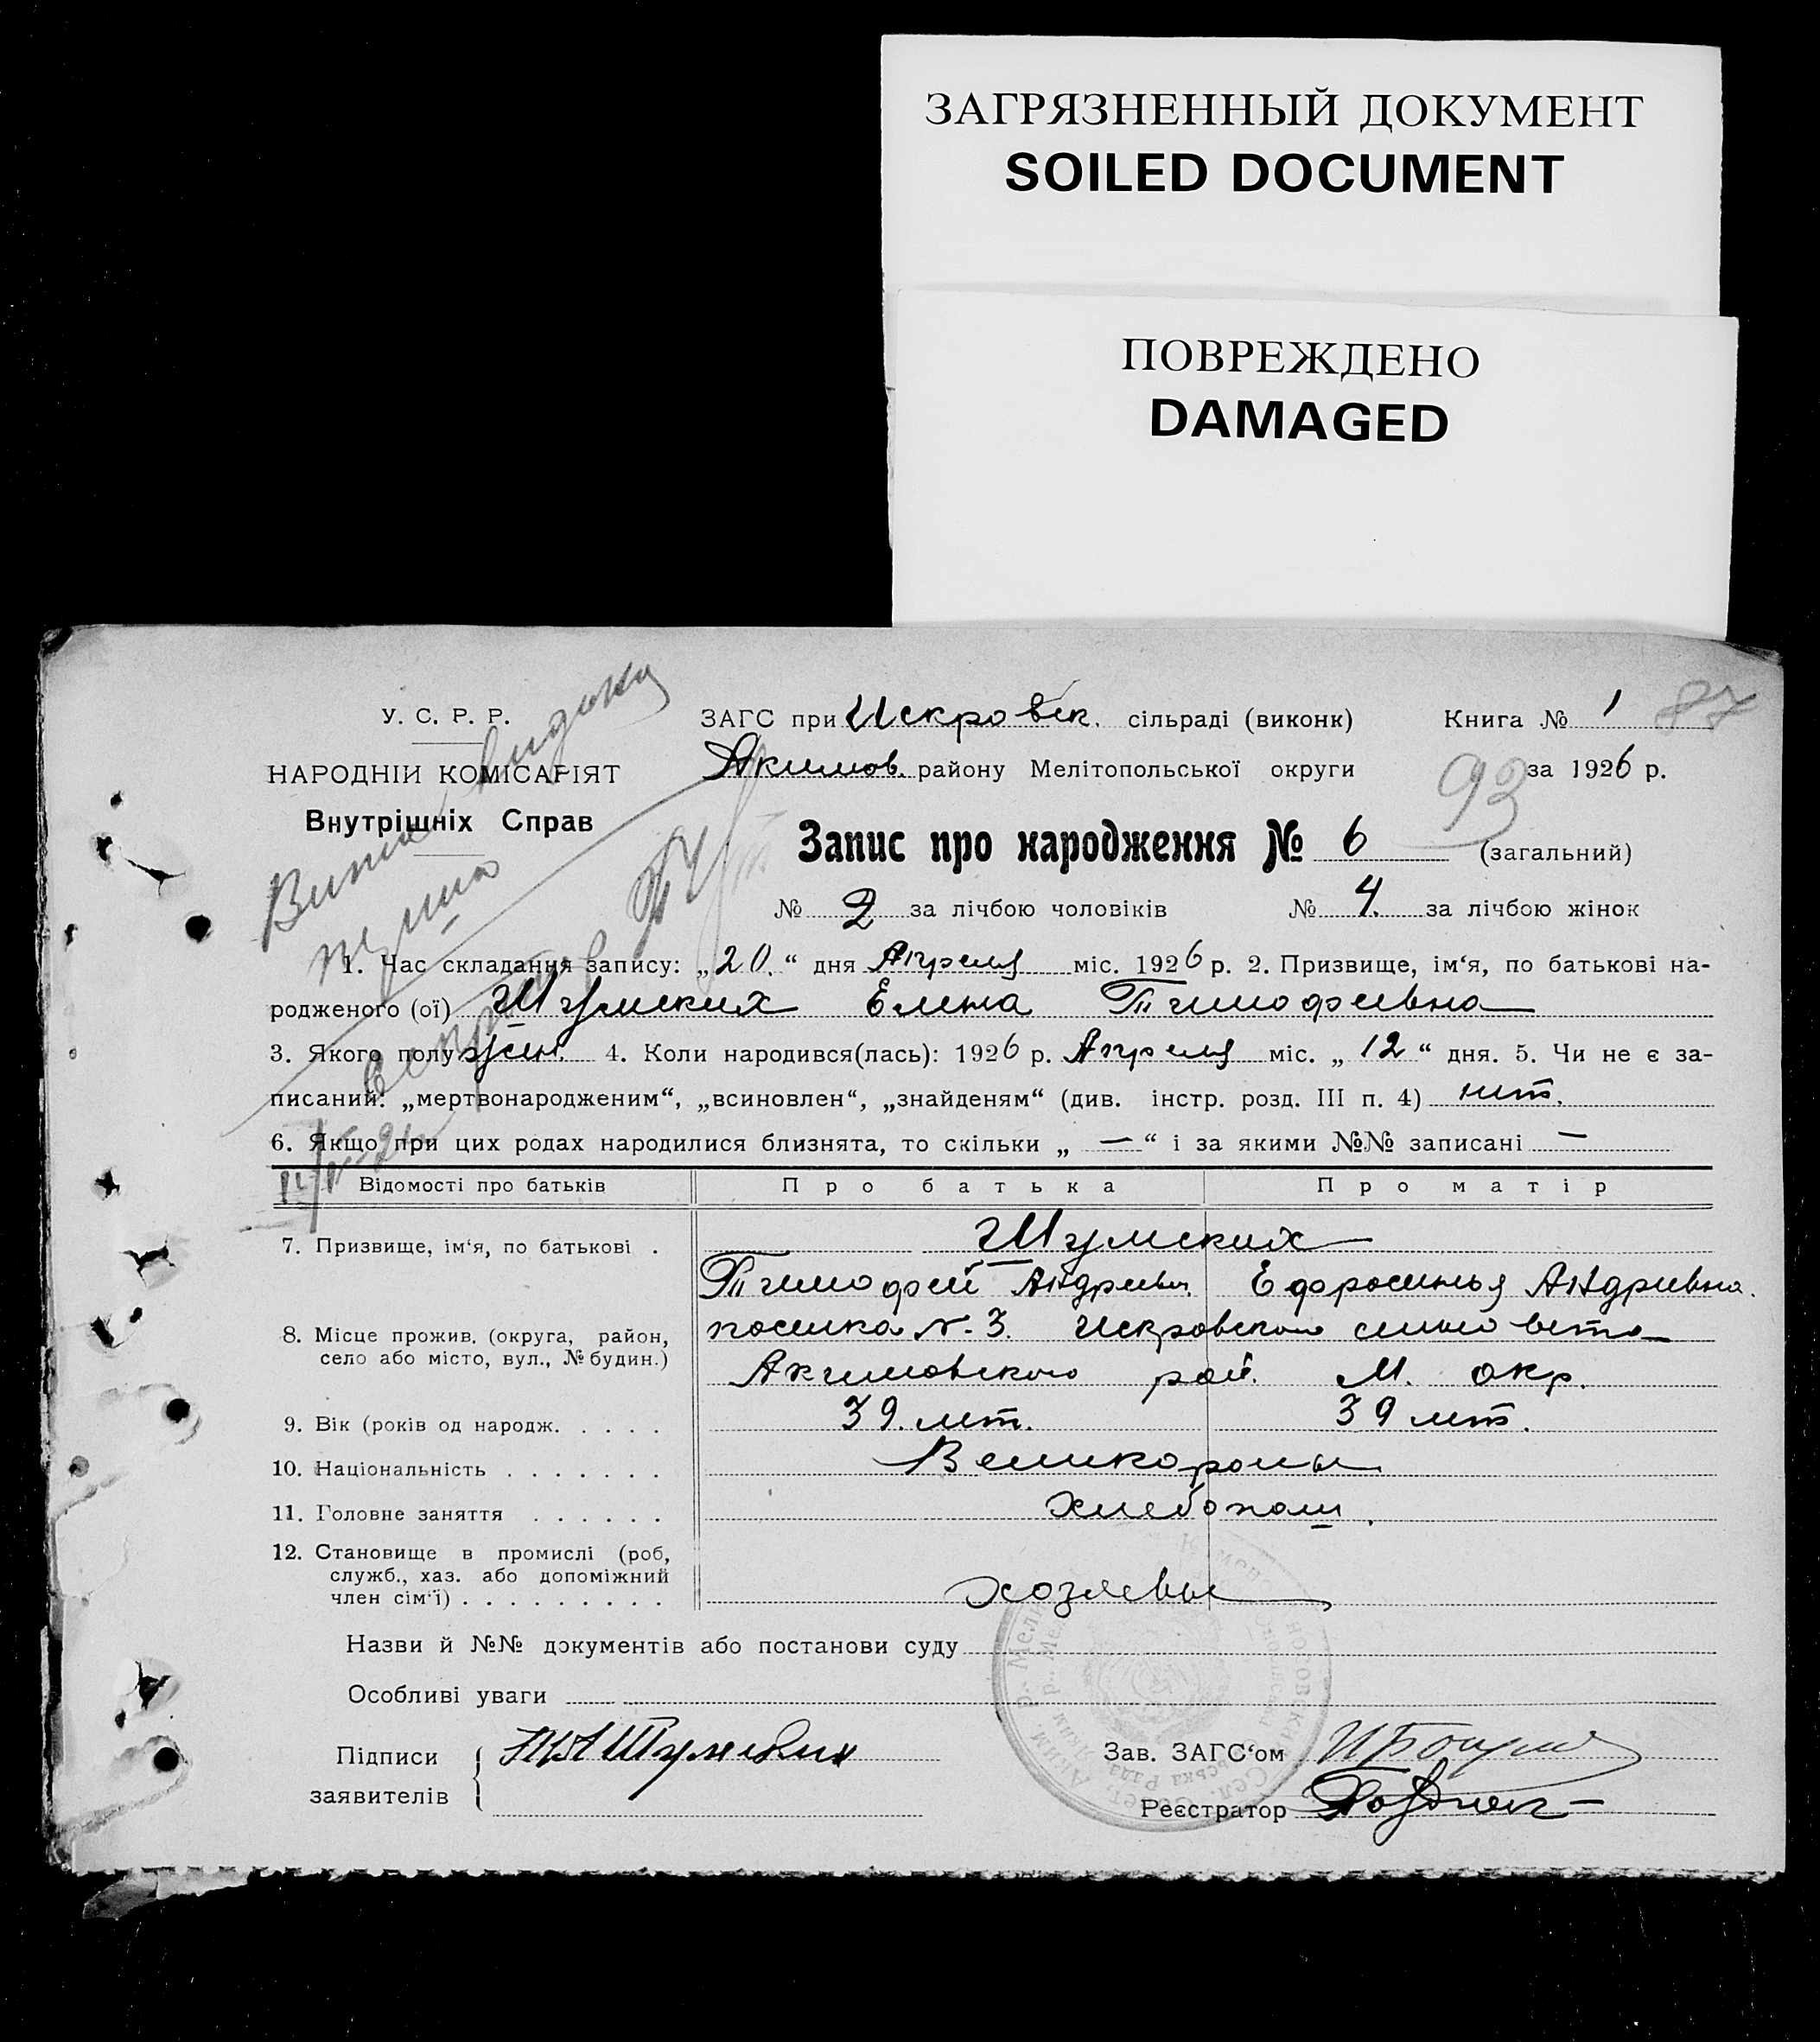 ЗАГРЯЗНЕННЫЙ ДОКУМЕНТ
SOILED DOCUMENT
ПОВРЕЖДЕНО
DAMAGED
У. С. Р. Р.
НАРОДНІЙ КОМІСАРІЯТ
Внутрішніх Справ
ЗАГС при Искровск. сільраді (виконк) Книга № 1 87
Акимов. району Мелітопольської округи за 1926 р.
93
Запис про народження № 6 (загальний)
№ 2 за лічбою чоловіків № 4. за лічбою жінок
1. Час складання запису: „20.“ дня Апреля міс. 1926 р. 2. Призвище, ім‘я, по батькові на-
родженого (ої) Шумских Елена Тимофеевна
3. Якого полу жен. 4. Коли народився(лась): 1926 р. Апреля міс. „12“ дня. 5. Чи не є за-
писаний: „мертвонародженим“, „всиновлен“, „знайденям“ (див. інстр. розд. III п. 4) нет.
6. Якщо при цих родах народилися близнята, то скільки „ — “ і за якими №№ записані —
Відомості про батьків Про батька Про матір
7. Призвище, ім‘я, по батькові . Шумских
Тимофей Андреев. Ефросинья Андреевна.
8. Місце прожив. (округа, район, село або місто, вул., № будин.) поселка №. 3. Искровского сельсовета
Акимовского рай. М. окр.
9. Вік (років од народж. . . . . 39. лет. 39 лет.
10. Національність . . . . . . . Великороссы
11. Головне заняття . . . . . . Хлебопаш.
12. Становище в промислі (роб, служб., хаз. або допоміжний член сім‘ї) . . . . . . . . . хозяевы
Назви й №№ документів або постанови суду
Особливі уваги
Підписи заявителів Шумских
Зав. ЗАГС‘ом
Реєстратор